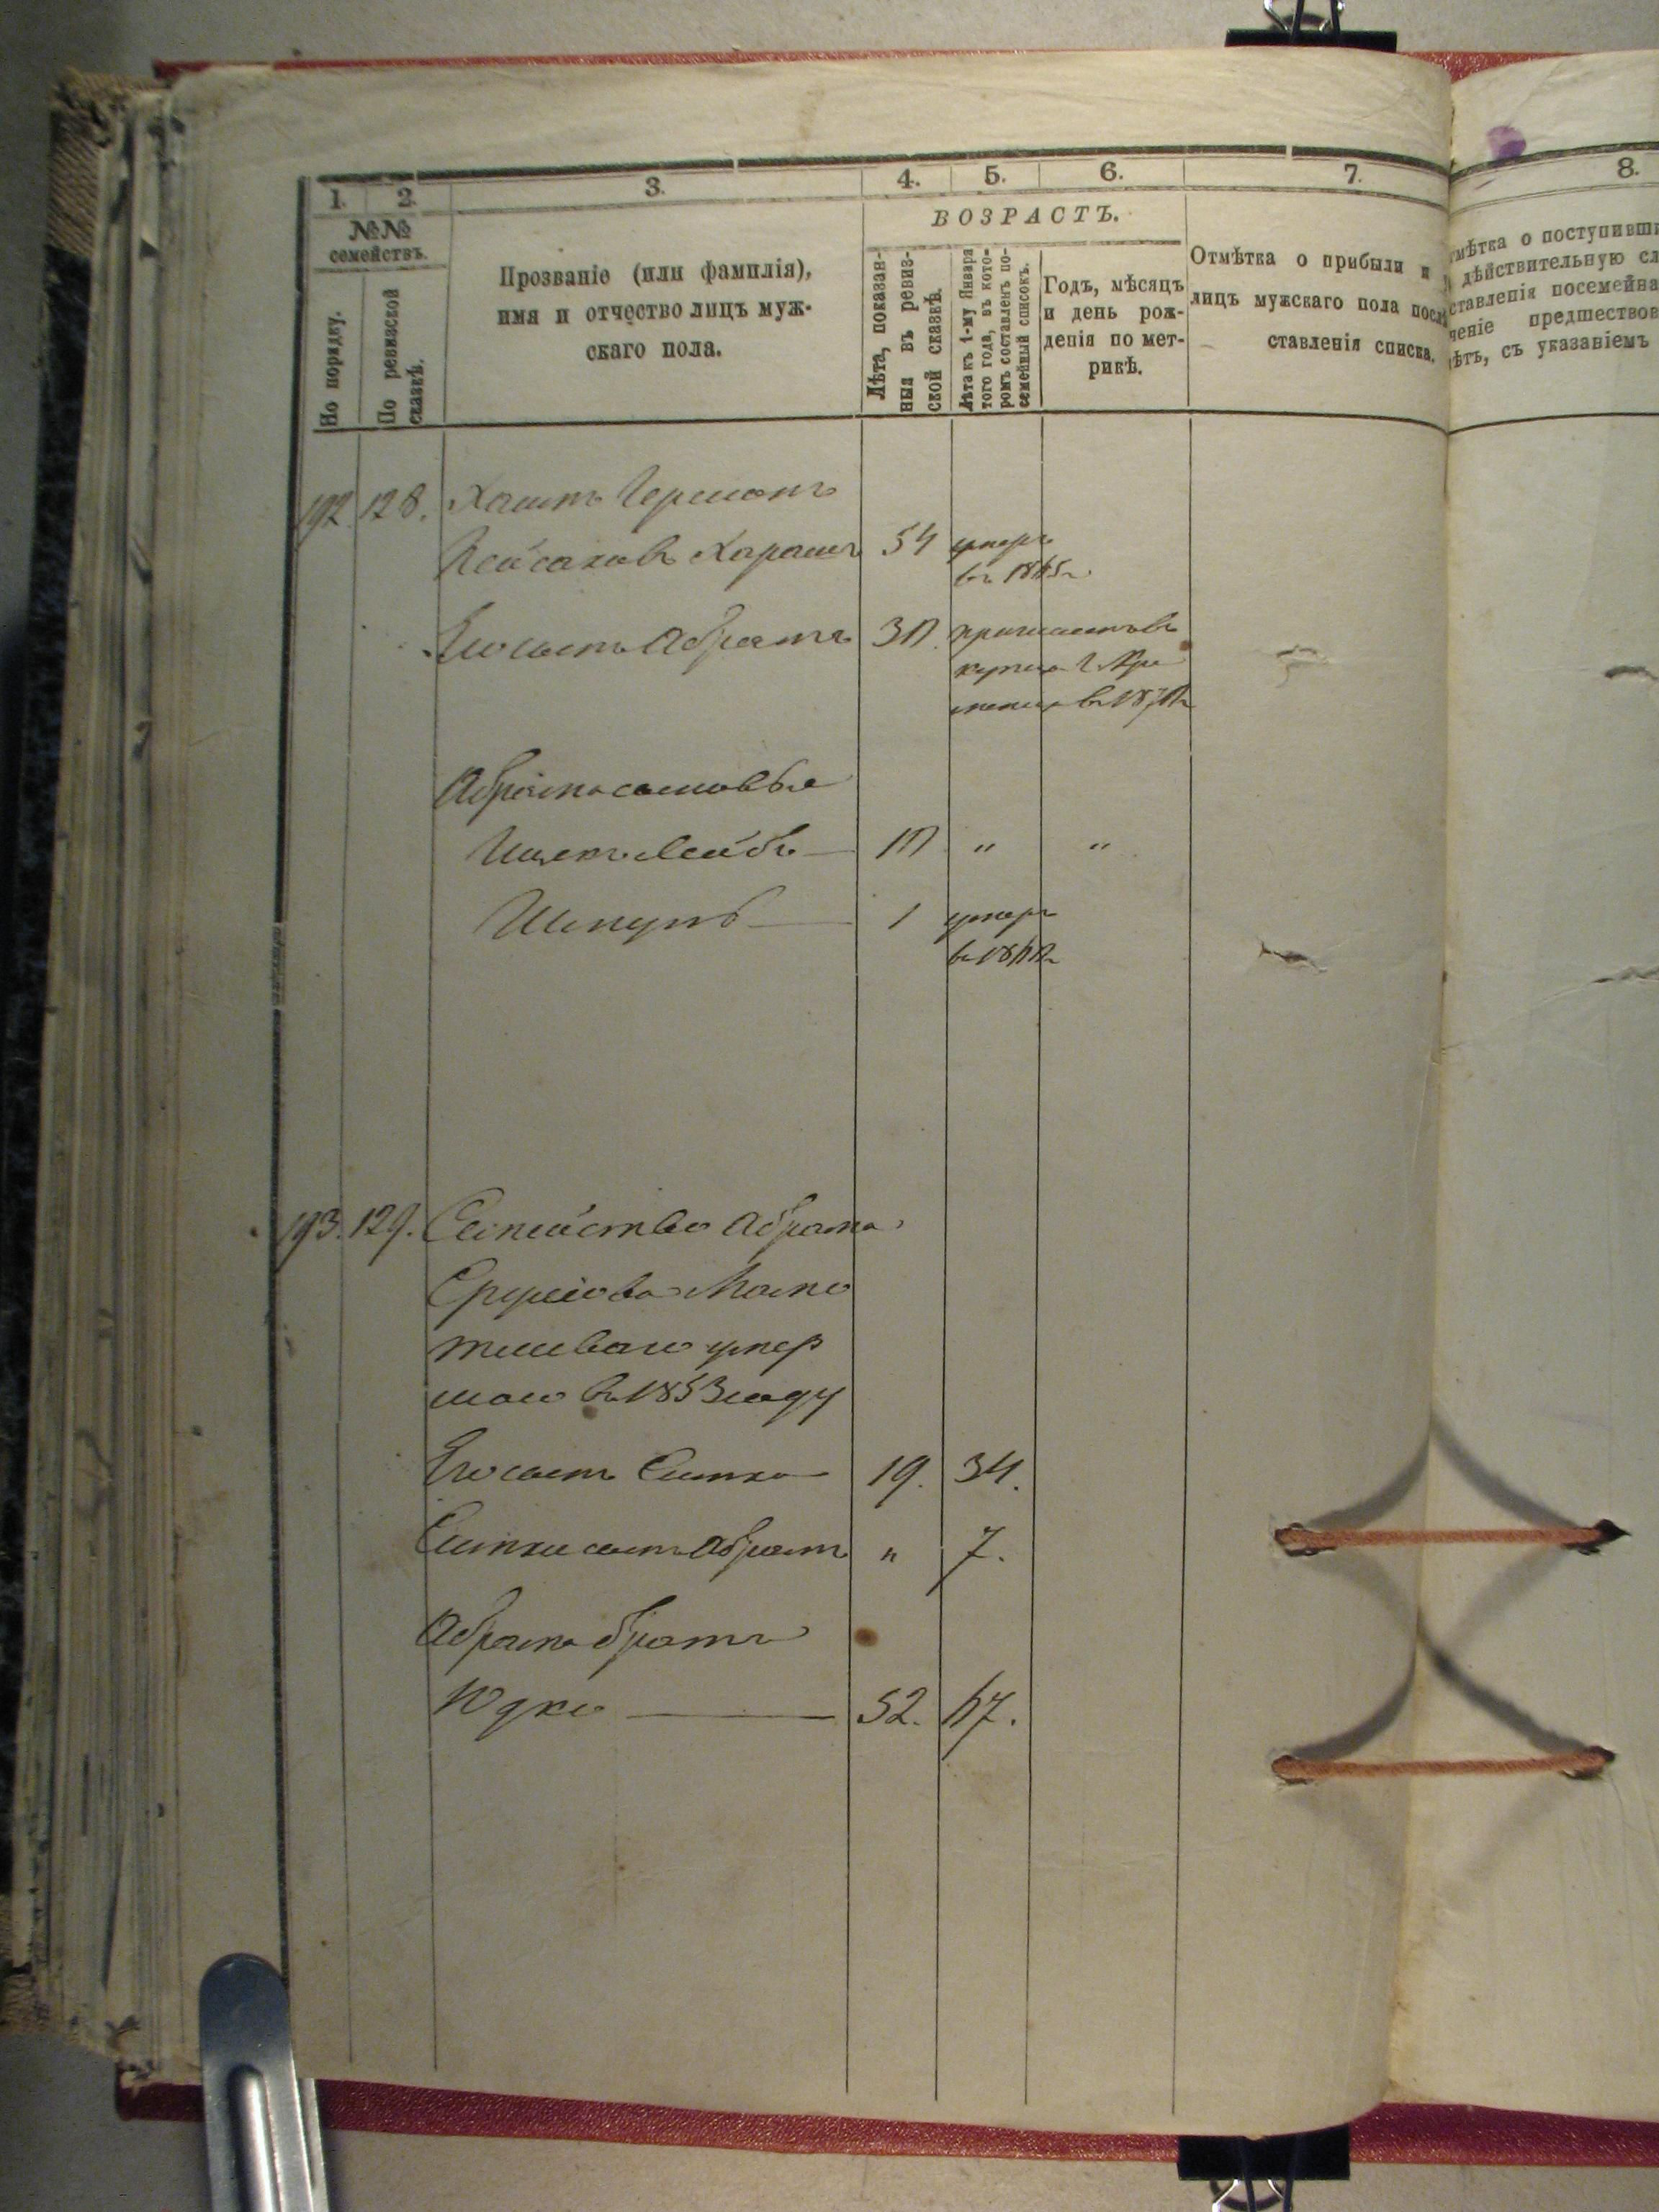 1. 2. 3. 4. 5. 6. 7. 8.
№№ семействъ.
По порядку.
По ревизской сказкѣ.
Прозваніе (или фамилія),
имя и отчество лицъ муж-
скаго пола.
ВОЗРАСТЪ.
Лѣта, показан-
ныя въ ревиз-
ской сказкѣ.
Лѣта къ 1-му Января
того года, въ кото-
ромъ составленъ по-
семейный списокъ.
Годъ, мѣсяцъ
и день рож-
денія по мет-
рикѣ.
Отмѣтка о прибыли и
лицъ мужскаго пола посл
ставленія списка.
мѣтка о поступивши
дѣйствительную сл
ставленія посемейна
ченіе предшествов
ѣтъ, съ указаніемъ
192. 128.
54 умеръ
въ 1865 г.
Его сынъ Абрамъ 30.
въ 1870 г.
Абрама сыновья
Лейбъ 10 " "
1 умеръ
въ 1860 г.
193. 129. Семейство Абрама
умер
шаго въ 1853 году
Его сынъ Симха 19. 34.
Симхи сынъ Абрамъ " 7.
Абрама братъ
Юдко 52. 67.